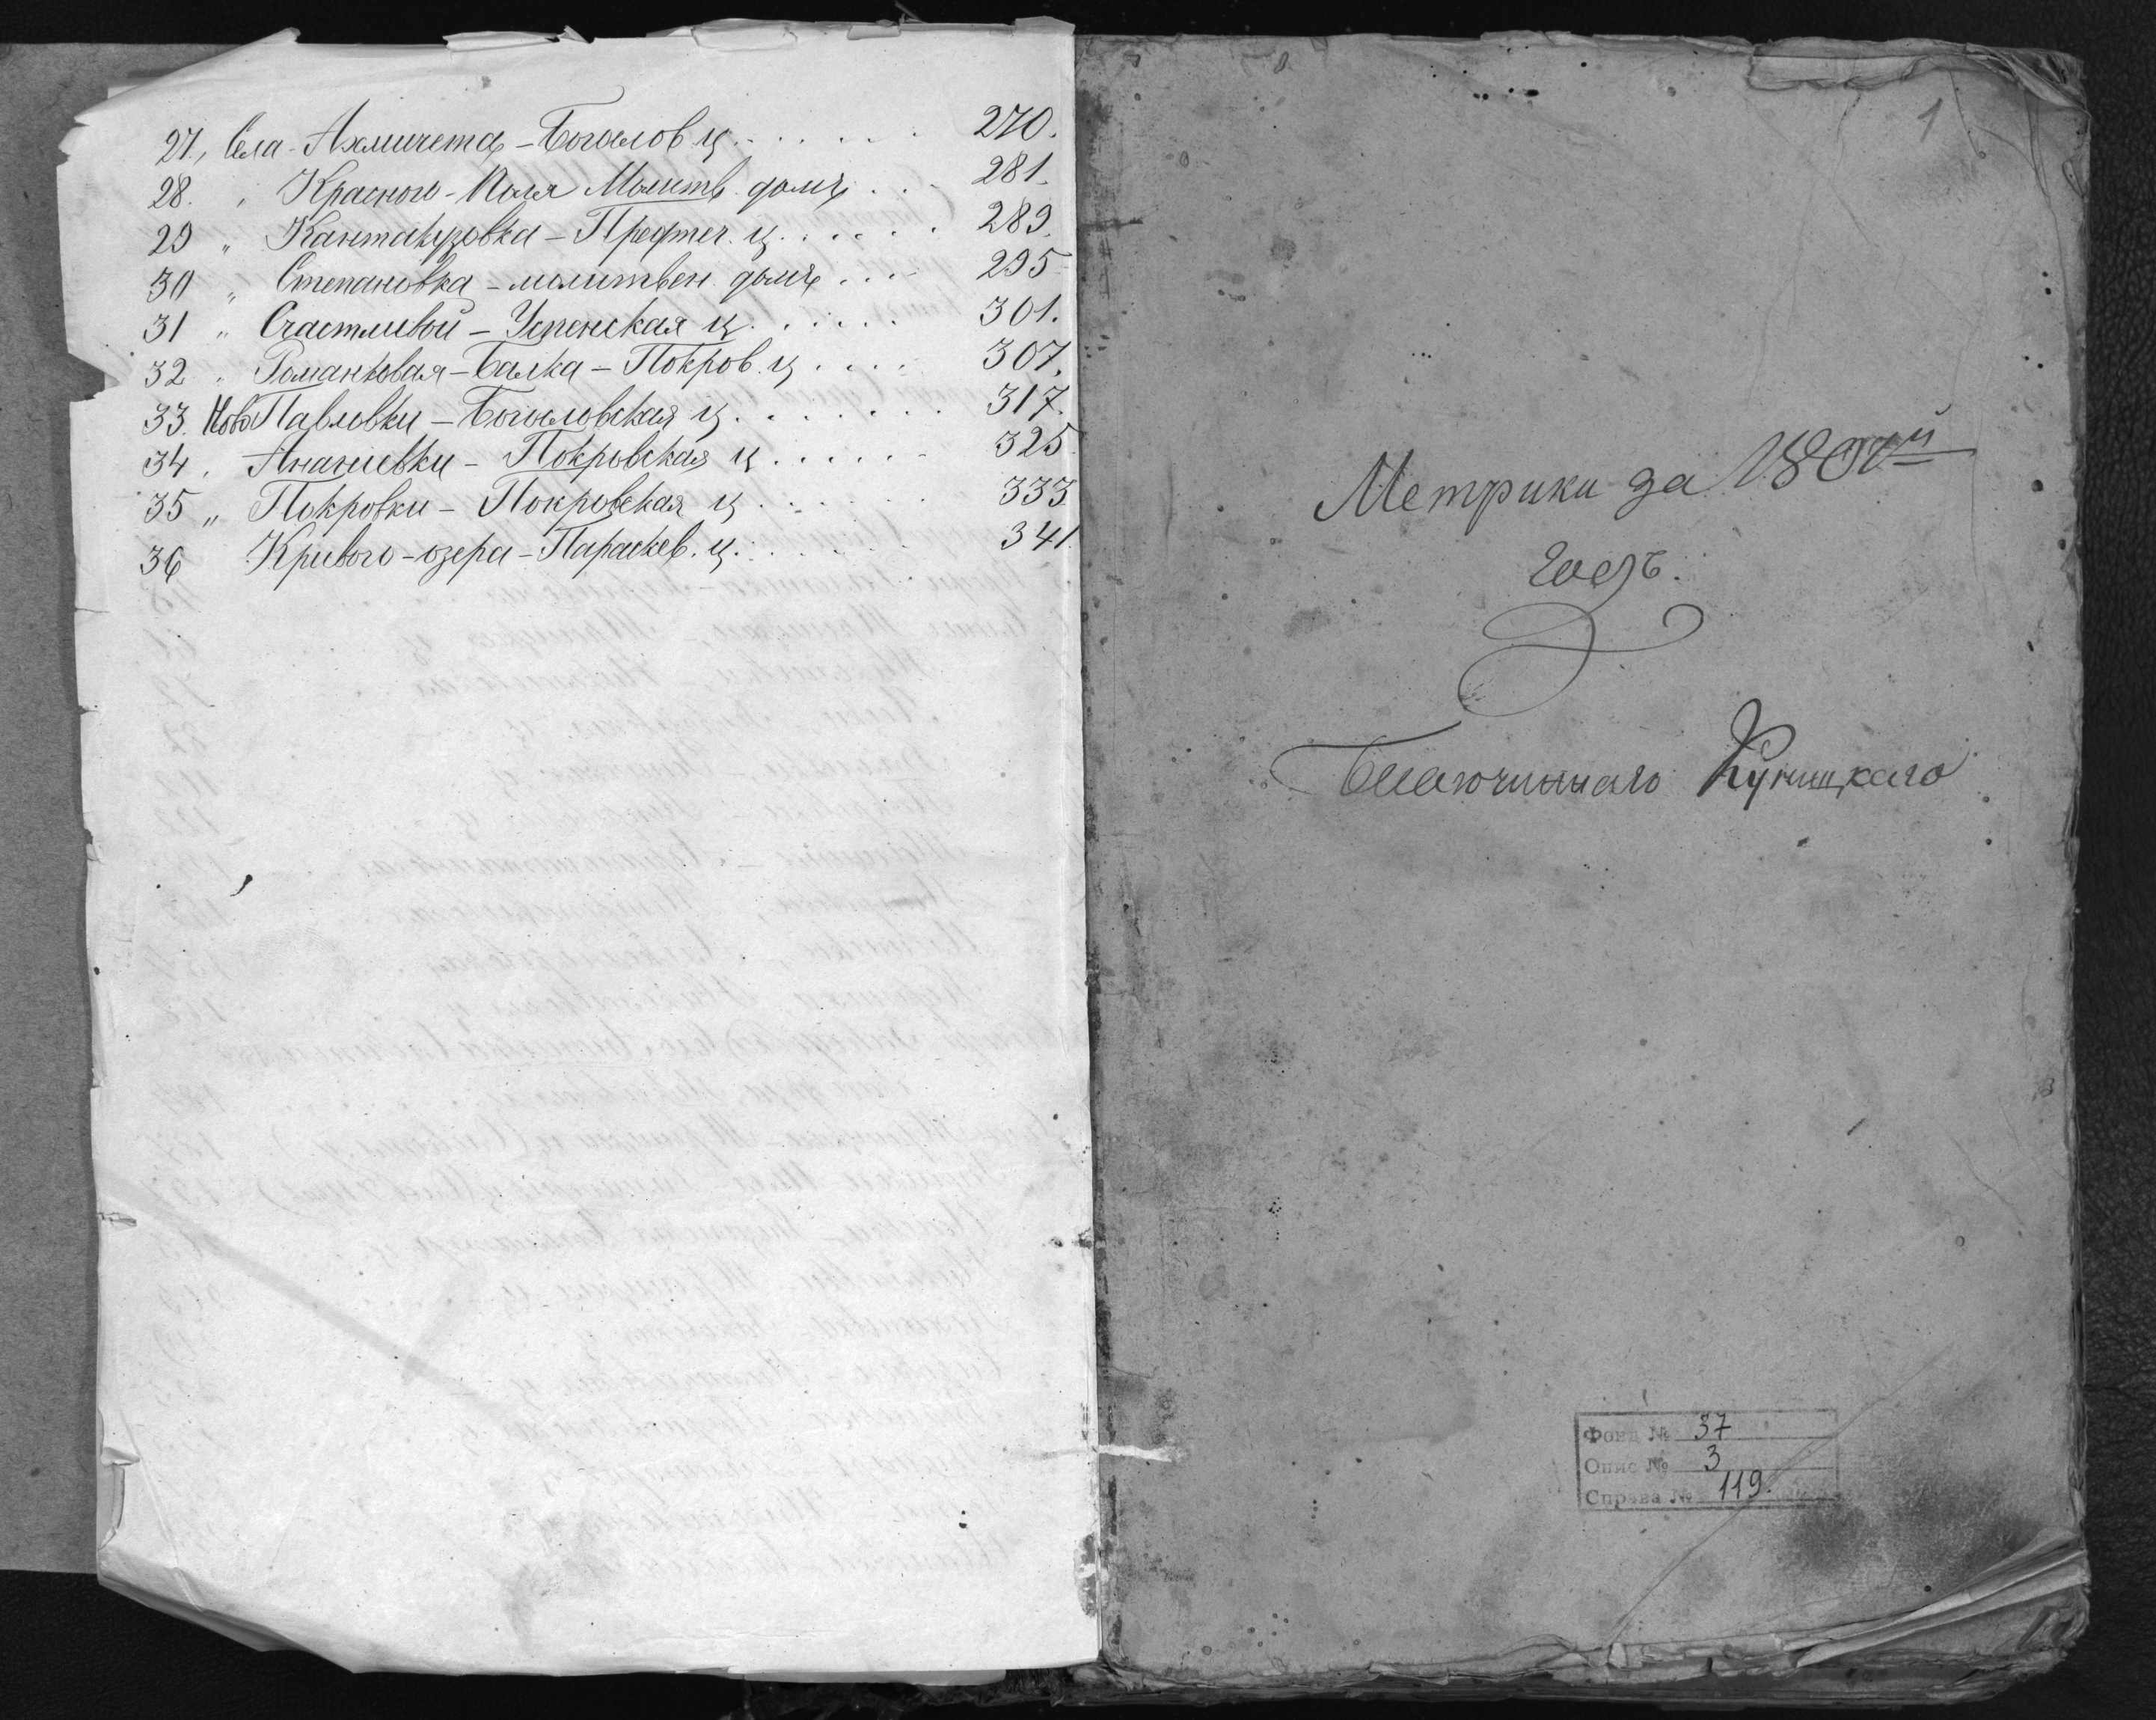 27, Села Ахмичета - Богослов ц. . . . . . . 270.
28. „ Красного-Поля Молитв. домъ . . . 281.
29 „ Кантакузовка - Предтеч. ц. . . . . . 289.
30 „ Степановка - молитвен. домъ . . . 295
31 „ Счастливой - Успенская ц. . . . . . 301.
32 „ Романковая-Балка - Покров. ц. . . . 307.
33. Ново Павловки - Богословская ц. . . . . . . 317.
34 . Ананиевки - Покровская ц. . . . . . 325
35 „ Покровки - Покровская ц. . . . . . 333
36 Кривого-озера - Параскев. ц. . . . . . 341.
1
Метрики за 1807й
Годъ.
Благочиннаго Куницкаго
Фонд № 37
Опис № 3
Справа № 119.